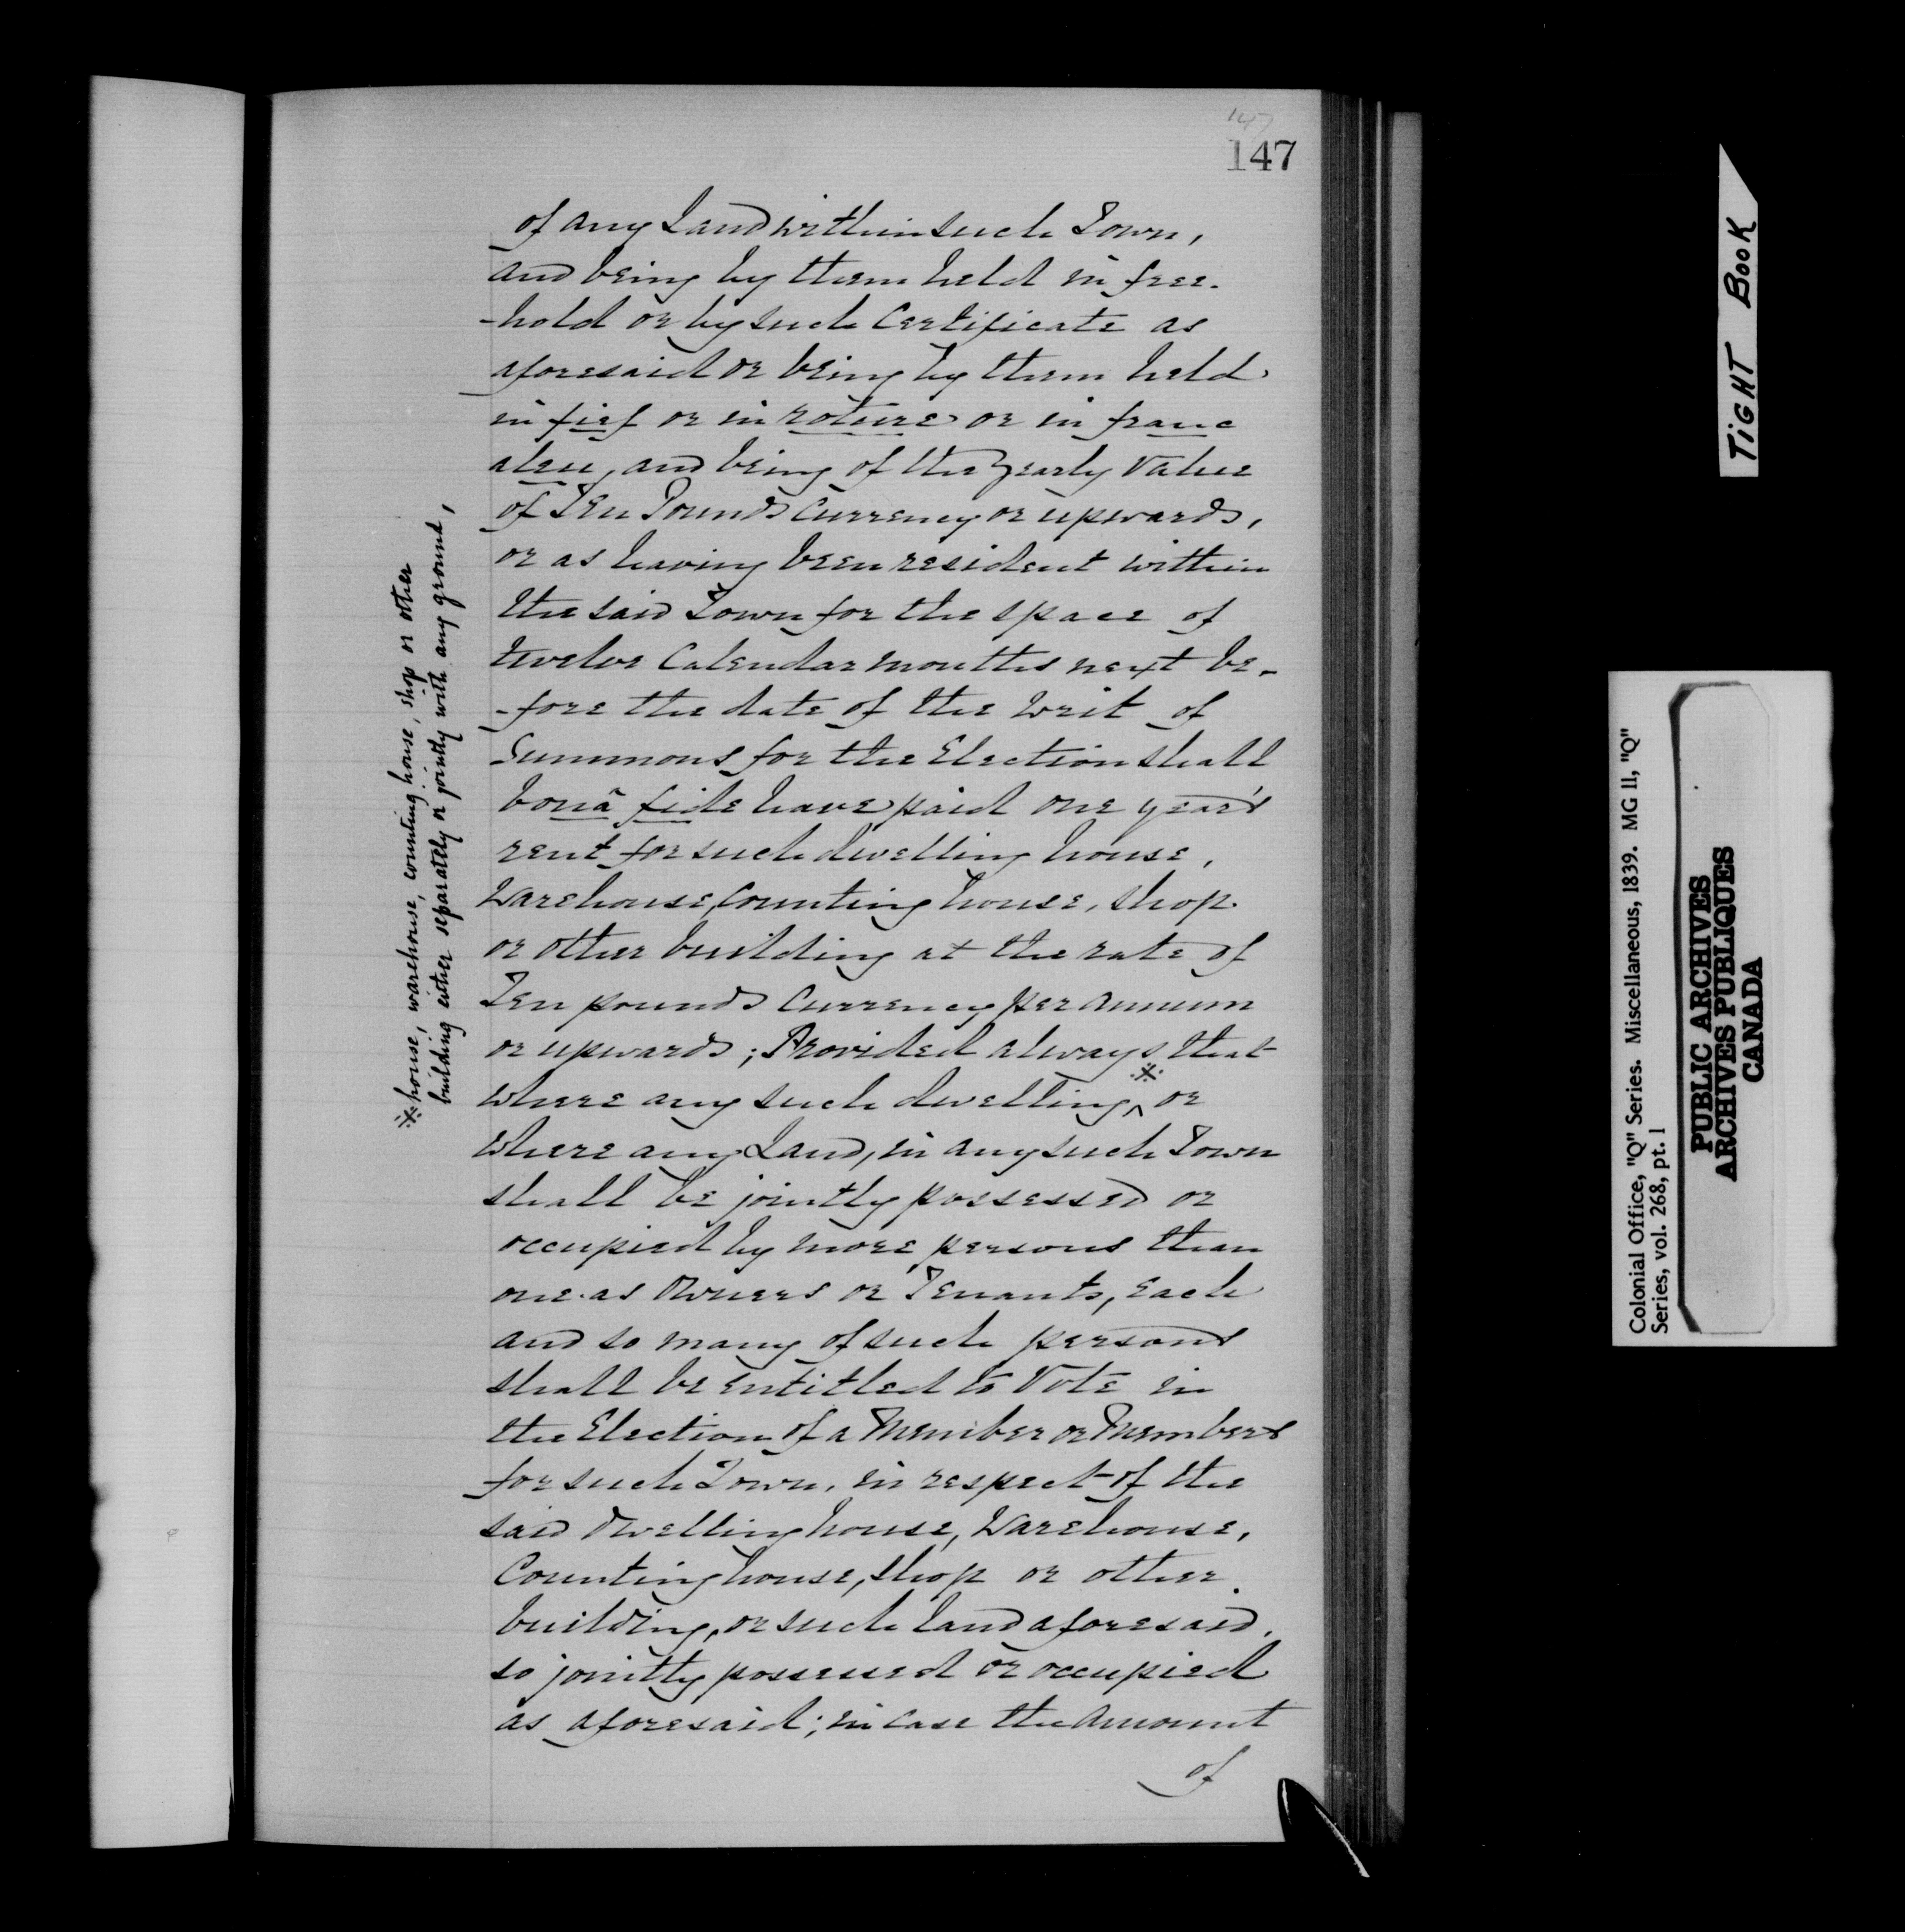 147
147
of any Land within such Town,
and being by them held in free-
-hold or by such Certificate as
aforesaid or being by them held
in fief or in roture or in franc
aleu, and being of the Yearly Value
of Ten Pounds Currency or upwards,
or as having been resident within
the said Town for the space of
twelve Calendar months next be-
-fore the date of the Writ of
Summons for the Election shall
bonâ fide have paid one year's
rent for such dwelling house,
Warehouse, Counting house, shop
or other building at the rate of
Ten pounds Currency per annum
or upwards; Provided always that
where any such dwelling ※ or
where any Land, in any such Town
shall be jointly possessed or
occupied by more persons than
one as Owners or Tenants, each
and so many of such persons
shall be entitled to Vote in
the Election of a Member or Members
for such Town, in respect of the
said dwelling house, Warehouse,
Counting house, shop or other
building, or such land aforesaid,
so jointly possessed or occupied
as aforesaid; in case the amount
of
※ house, warehouse, counting house, shop or other
building either separately or jointly with any ground,
TIGHT BOOK
Colonial Office, "Q" Series. Miscellaneous, 1839. MG 11, "Q"
Series, vol. 268, pt. 1
PUBLIC ARCHIVES
ARCHIVES PUBLIQUES
CANADA